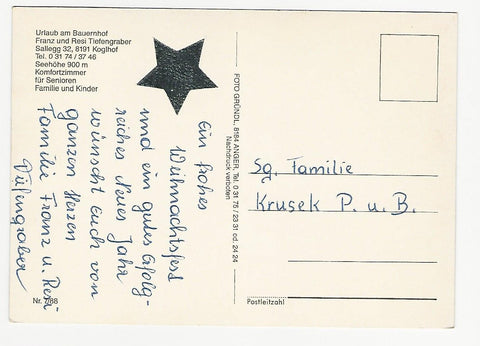 Urlaub am Bauernhof
Franz und Resi Tiefengraber
Sallegg 32, 8191 Koglhof
Tel. 0 31 74 / 37 46
Seehöhe 900 m
Komfortzimmer
für Senioren
Familie und Kinder
Ein frohes
Weihnachtsfest
und ein gutes erfolg-
reiches Neues Jahr
wünscht Euch von
ganzen Herzen
Familie Franz u. Resi
Tiefengraber
Nr. 7/88
FOTO GRÜNDL, 8184 ANGER, Tel. 0 31 75 / 23 31 od. 24 24
Nachdruck verboten
Sg. Familie
Krusek P. u. B.
Postleitzahl